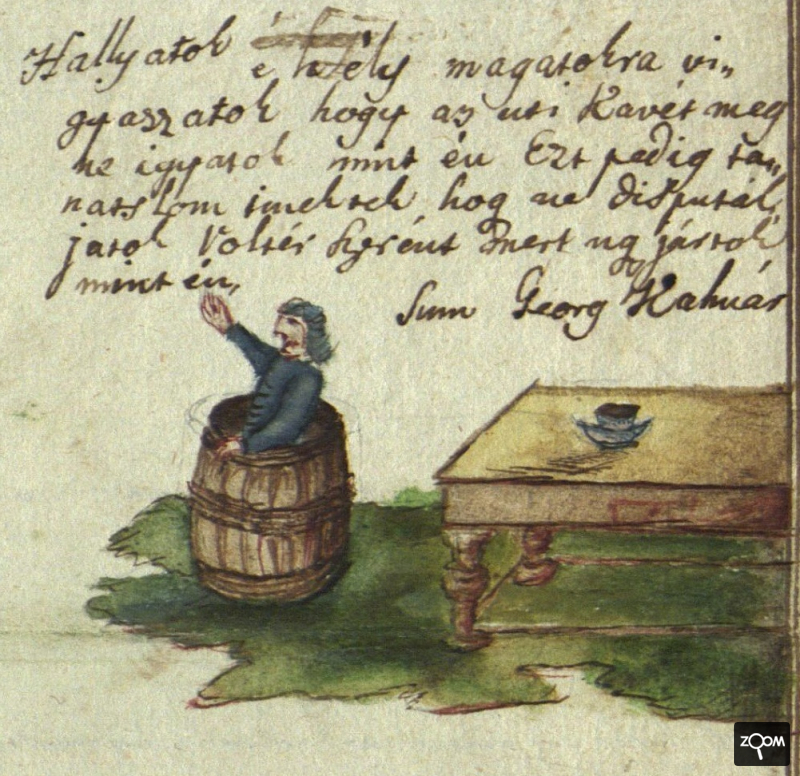 Hallyatok é
magatokra vi„
gyaszatok hogy az uti Kavét meg
ne igyatok mint én Ezt pedig ta„
natslom hog ne disputál„
jatok Voltér Szerént mert ug jártok
mint én,
Sum Georg Kahuár
ZOOM